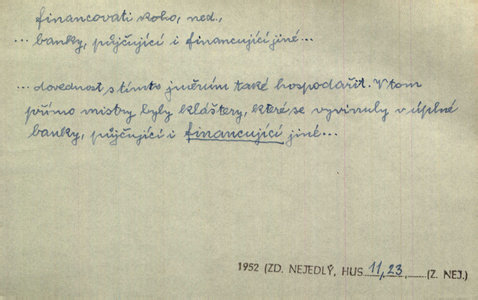 financovati koho, ned.,
... banky, půjčující i financující jiné...
... dovednost s tímto jměním také hospodařit. V tom
přímo mistry byly kláštery, které se vyvinuly v úplné
banky, půjčující i financující jiné...
1952 (ZD. NEJEDLÝ, HUS 11, 23, (Z. NEJ.)